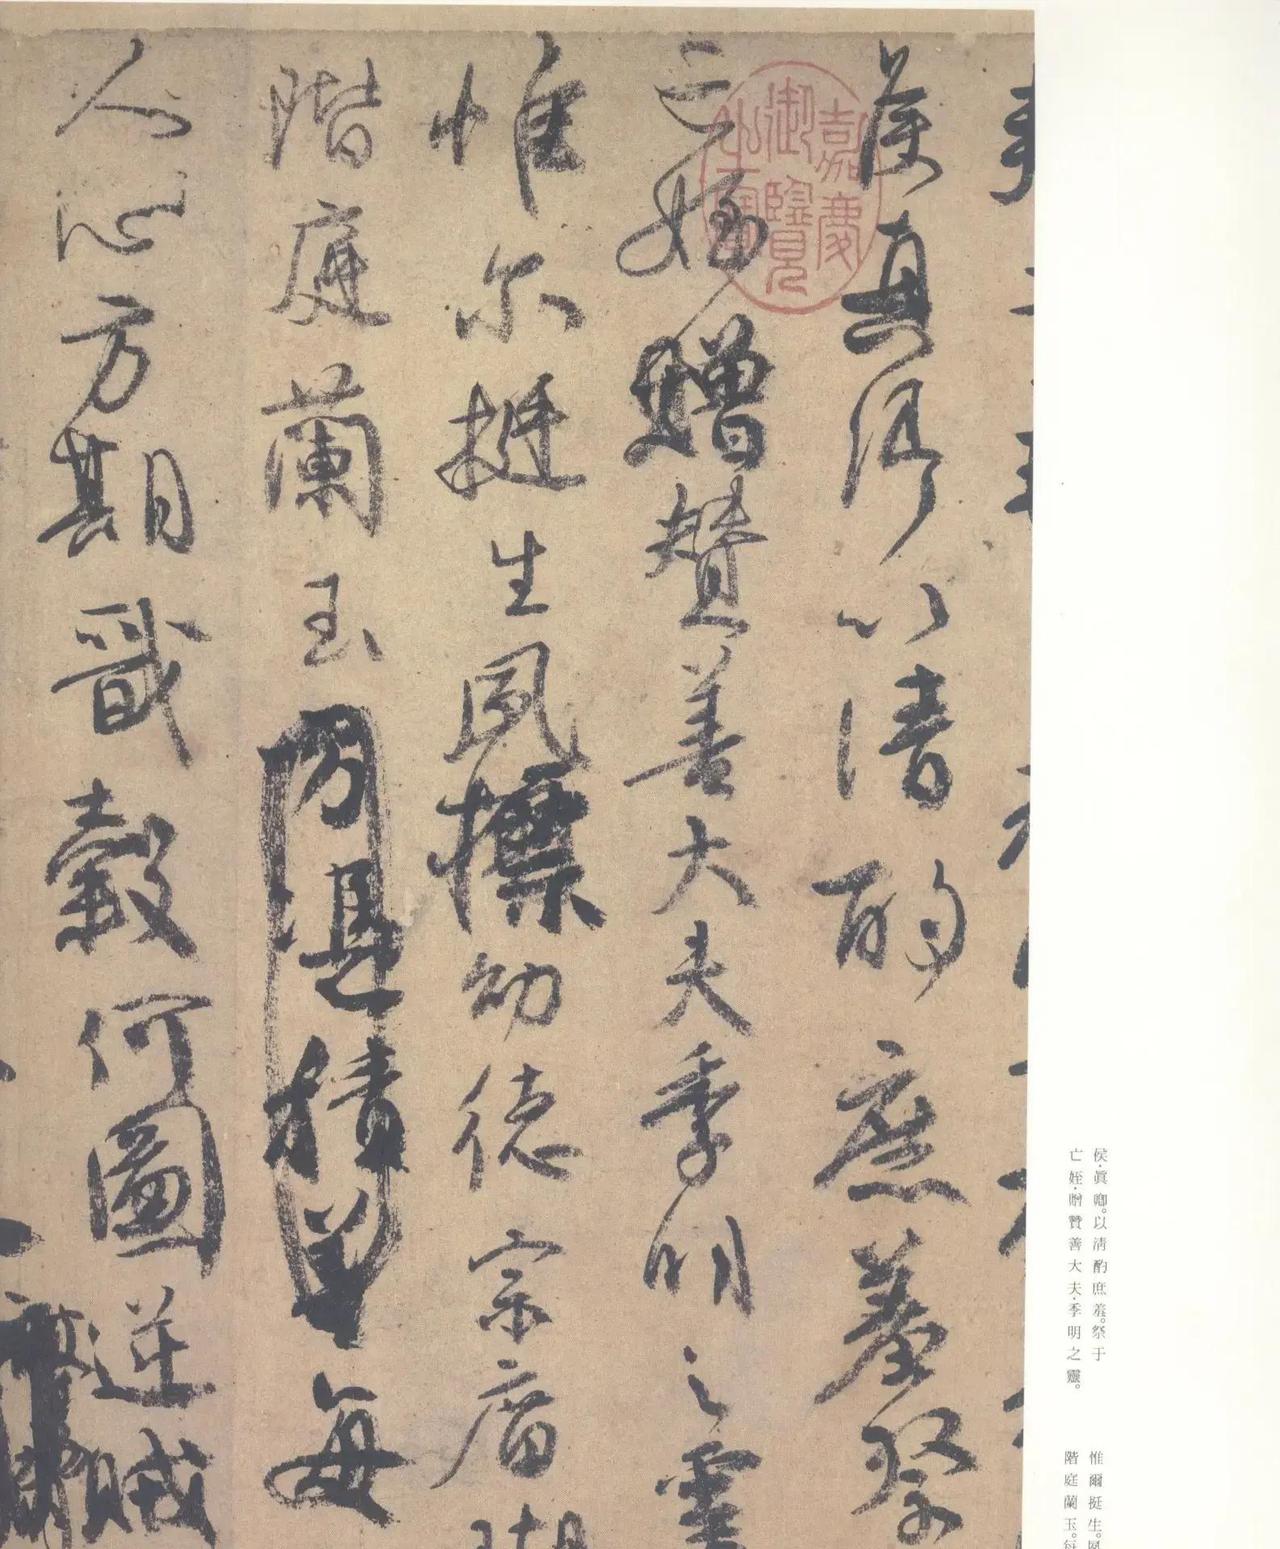 侯真卿以清酌庶羞祭
亡姪贈贊善大夫季明之靈
惟尔挺生夙標幼德宗廟瑚
階庭蘭玉方憑積善每
人心方期戩穀何圖逆賊
嘉慶
御覽
之寶
侯·眞卿。以清酌庶羞。祭于
亡姪·贈贊善大夫·季明之靈。
惟爾挺生。夙
階庭蘭玉。每